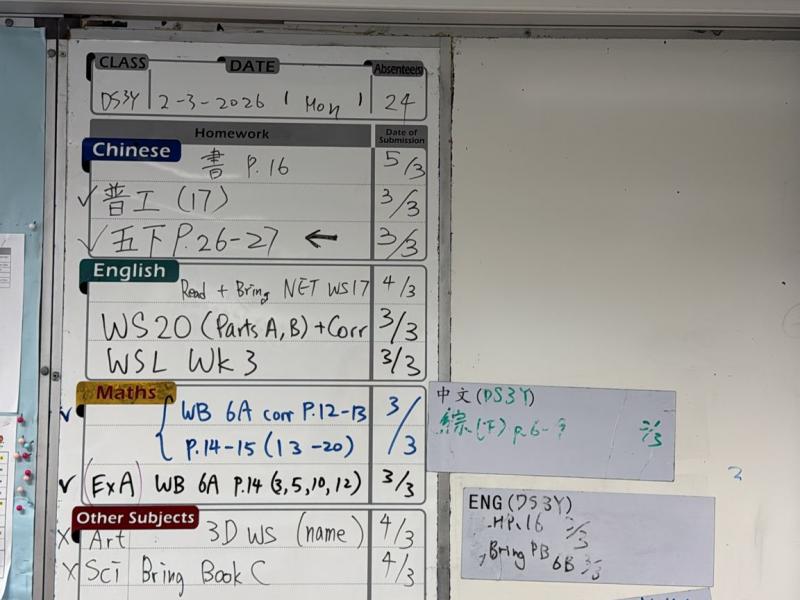 CLASS DATE Absentee(s)
DS3Y 2-3-2026 ( Mon ) 24
Homework Date of Submission
Chinese
書 P.16 5/3
✓ 普工 (17) 3/3
✓ 五下 P.26-27 ← 3/3
English
Read + Bring NET WS17 4/3
WS20 (Parts A, B) + Corr 3/3
WSL Wk 3 3/3
Maths
✓ WB 6A corr P.12-13 3/3
P.14-15 (13-20)
✓ (ExA) WB 6A P.14 (3,5,10,12) 3/3
Other Subjects
X Art 3D WS (name) 4/3
X Sci Bring Book C 4/3
中文(DS3Y)
綜(下) p.6- 3/3
2
ENG (DS3Y)
HP.16 3/3
Bring PB 6B 3/3